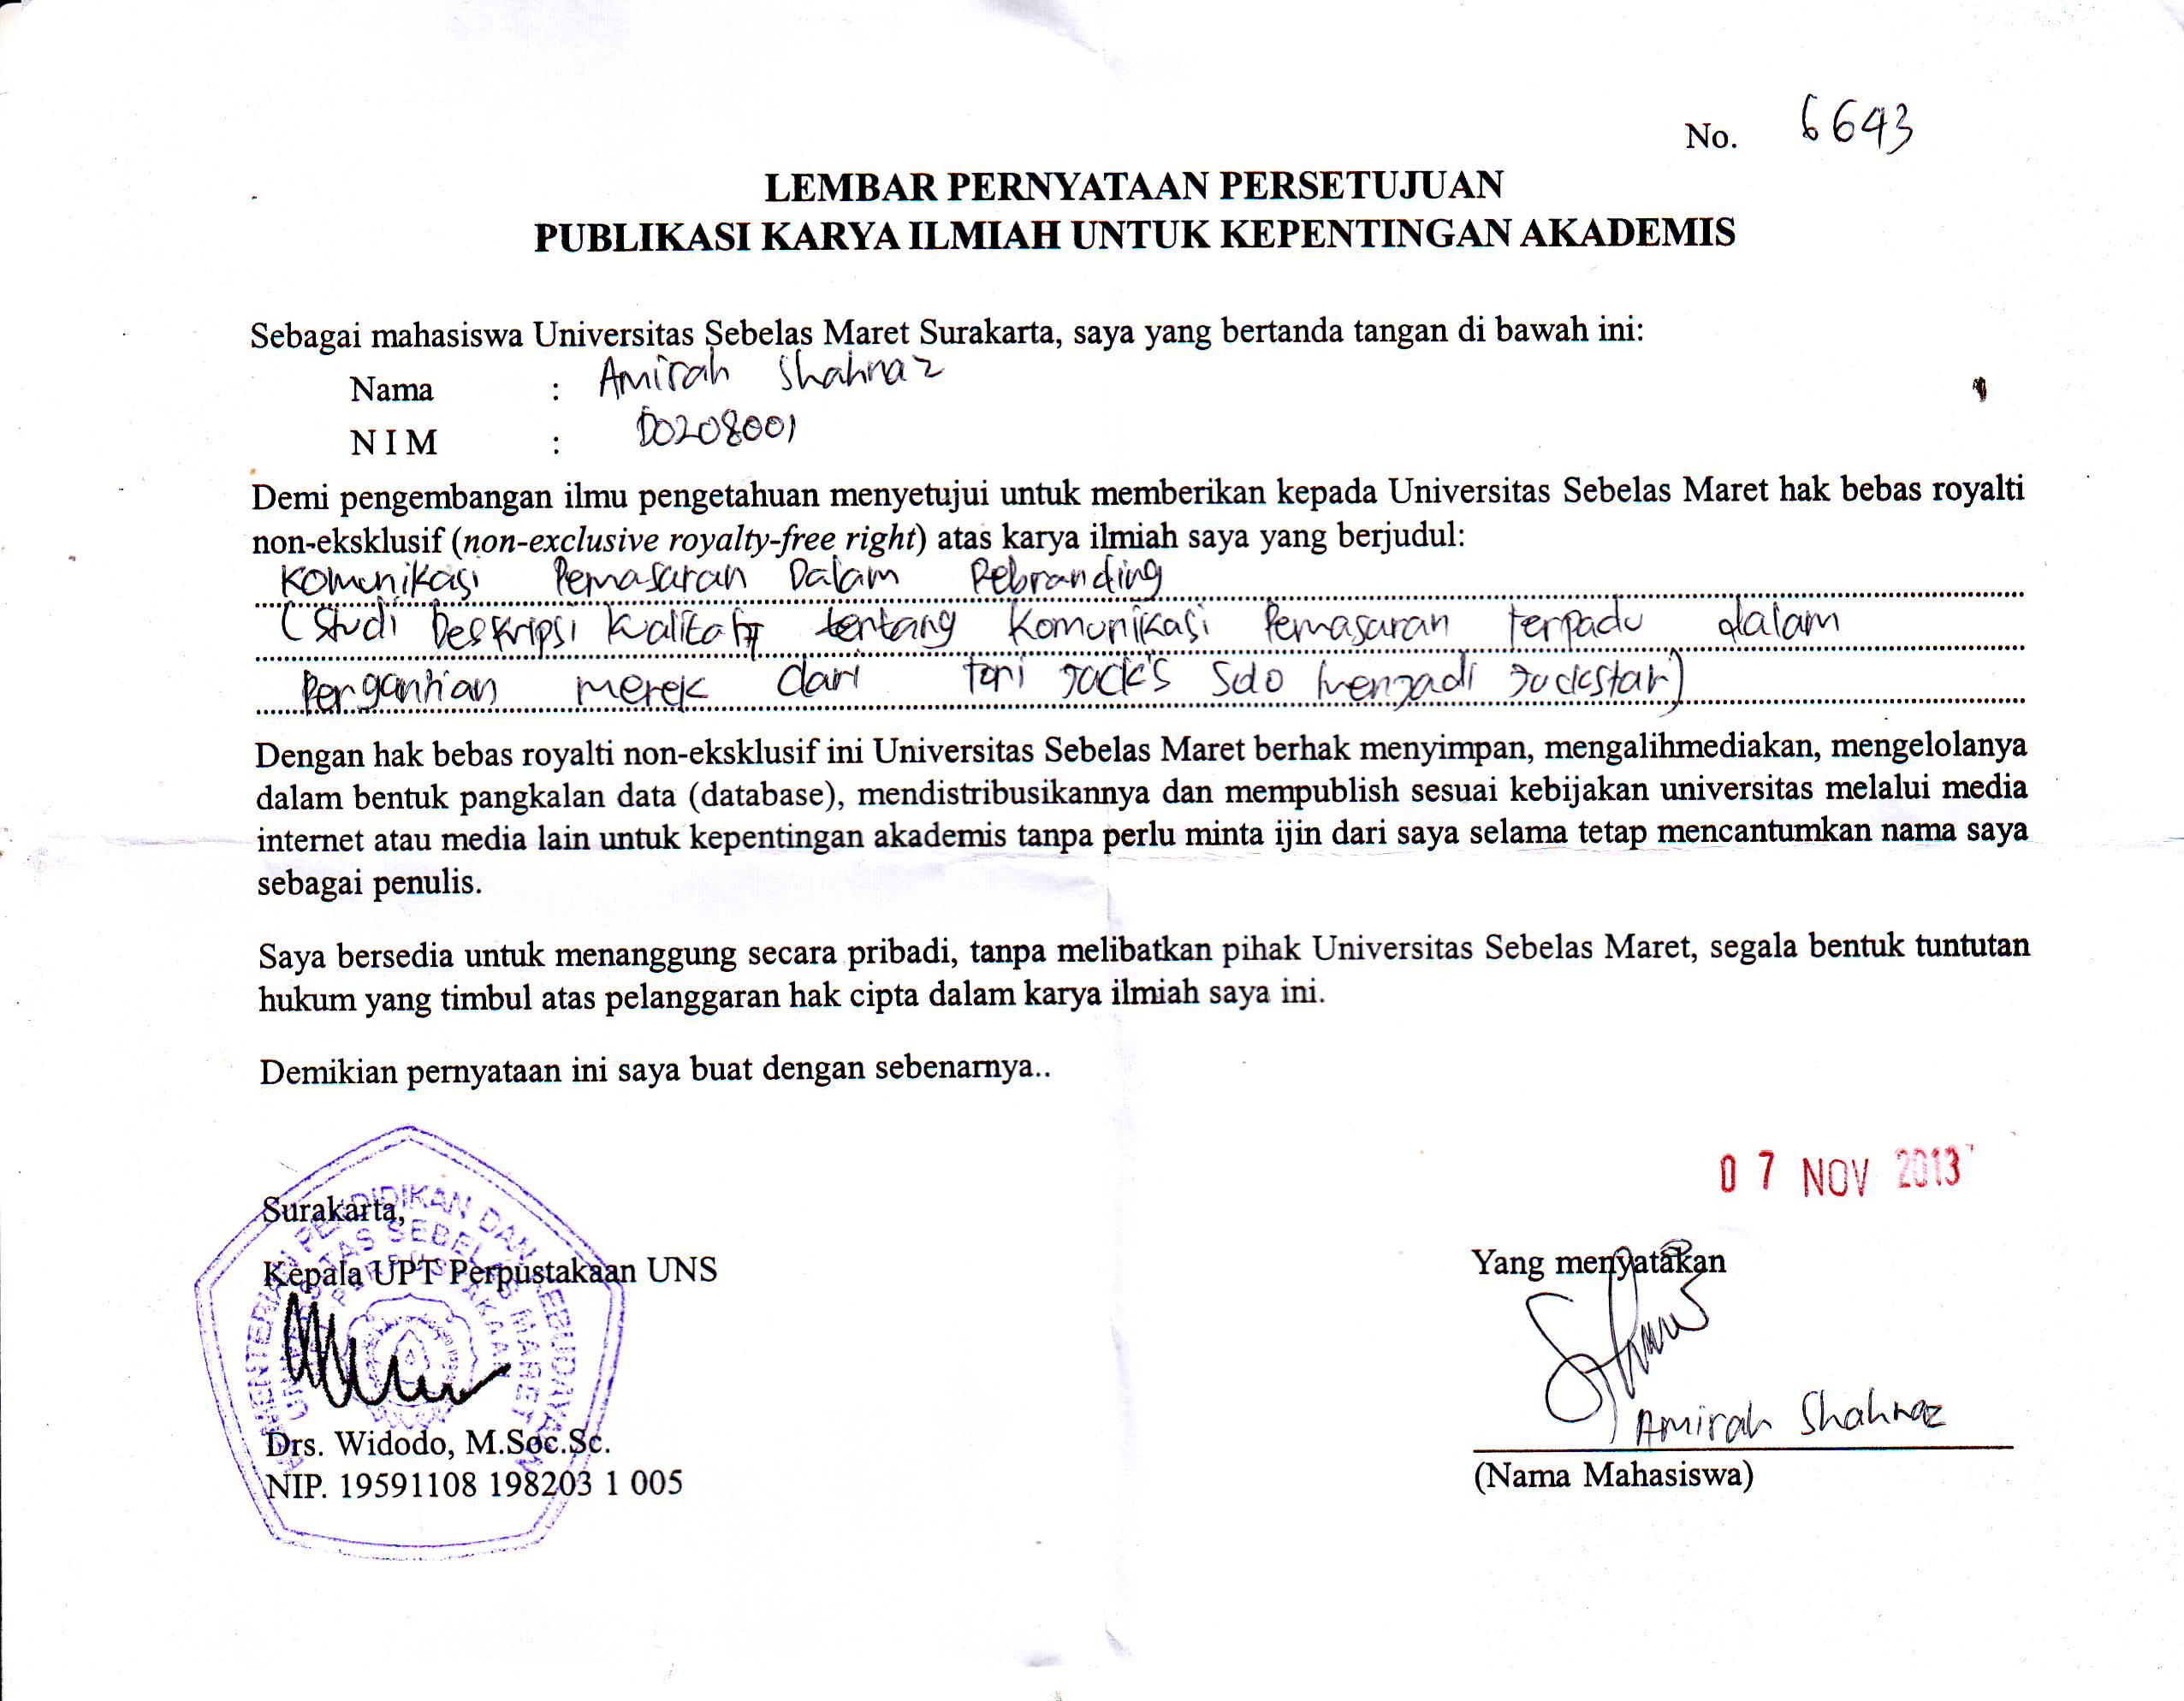 No. 6643
LEMBAR PERNYATAAN PERSETUJUAN
PUBLIKASI KARYA ILMIAH UNTUK KEPENTINGAN AKADEMIS
Sebagai mahasiswa Universitas Sebelas Maret Surakarta, saya yang bertanda tangan di bawah ini:
Nama : Amirah Shahnaz
N I M : D0208001
Demi pengembangan ilmu pengetahuan menyetujui untuk memberikan kepada Universitas Sebelas Maret hak bebas royalti
non-eksklusif (non-exclusive royalty-free right) atas karya ilmiah saya yang berjudul:
Komunikasi Pemasaran Dalam Rebranding
(Studi Deskripsi Kualitatif tentang Komunikasi Pemasaran terpadu dalam
Pergantian merek dari Toni Jack's Solo menjadi Jackstar)
Dengan hak bebas royalti non-eksklusif ini Universitas Sebelas Maret berhak menyimpan, mengalihmediakan, mengelolanya
dalam bentuk pangkalan data (database), mendistribusikannya dan mempublish sesuai kebijakan universitas melalui media
internet atau media lain untuk kepentingan akademis tanpa perlu minta ijin dari saya selama tetap mencantumkan nama saya
sebagai penulis.
Saya bersedia untuk menanggung secara pribadi, tanpa melibatkan pihak Universitas Sebelas Maret, segala bentuk tuntutan
hukum yang timbul atas pelanggaran hak cipta dalam karya ilmiah saya ini.
Demikian pernyataan ini saya buat dengan sebenarnya..
07 NOV 2013
Surakarta,
Kepala UPT Perpustakaan UNS
Yang menyatakan
KEMENTERIAN PENDIDIKAN DAN KEBUDAYAAN
UNIVERSITAS SEBELAS MARET
PERPUSTAKAAN
Amirah Shahnaz
Drs. Widodo, M.Soc.Sc.
(Nama Mahasiswa)
NIP. 19591108 198203 1 005